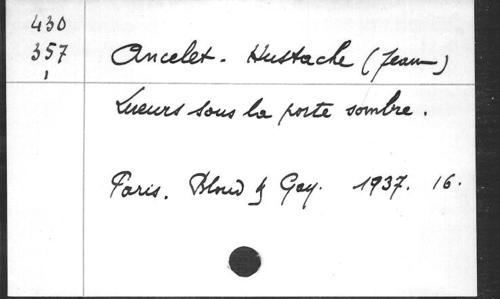 430
357
1
Ancelet. Hustache (Jean)
Lueurs sous la porte sombre.
Paris. Bloud & Gay. 1937. 16.